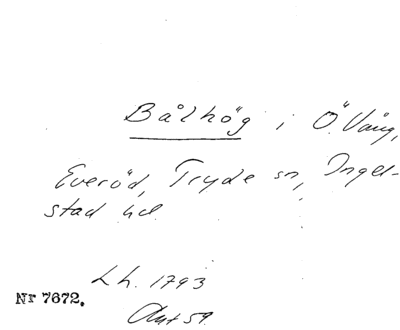 Bålhög i Ö. Vång,
Everöd, Tryde sn, Ingel-
stad hd.
Lh. 1793
Nr 7672.
Avt 59.